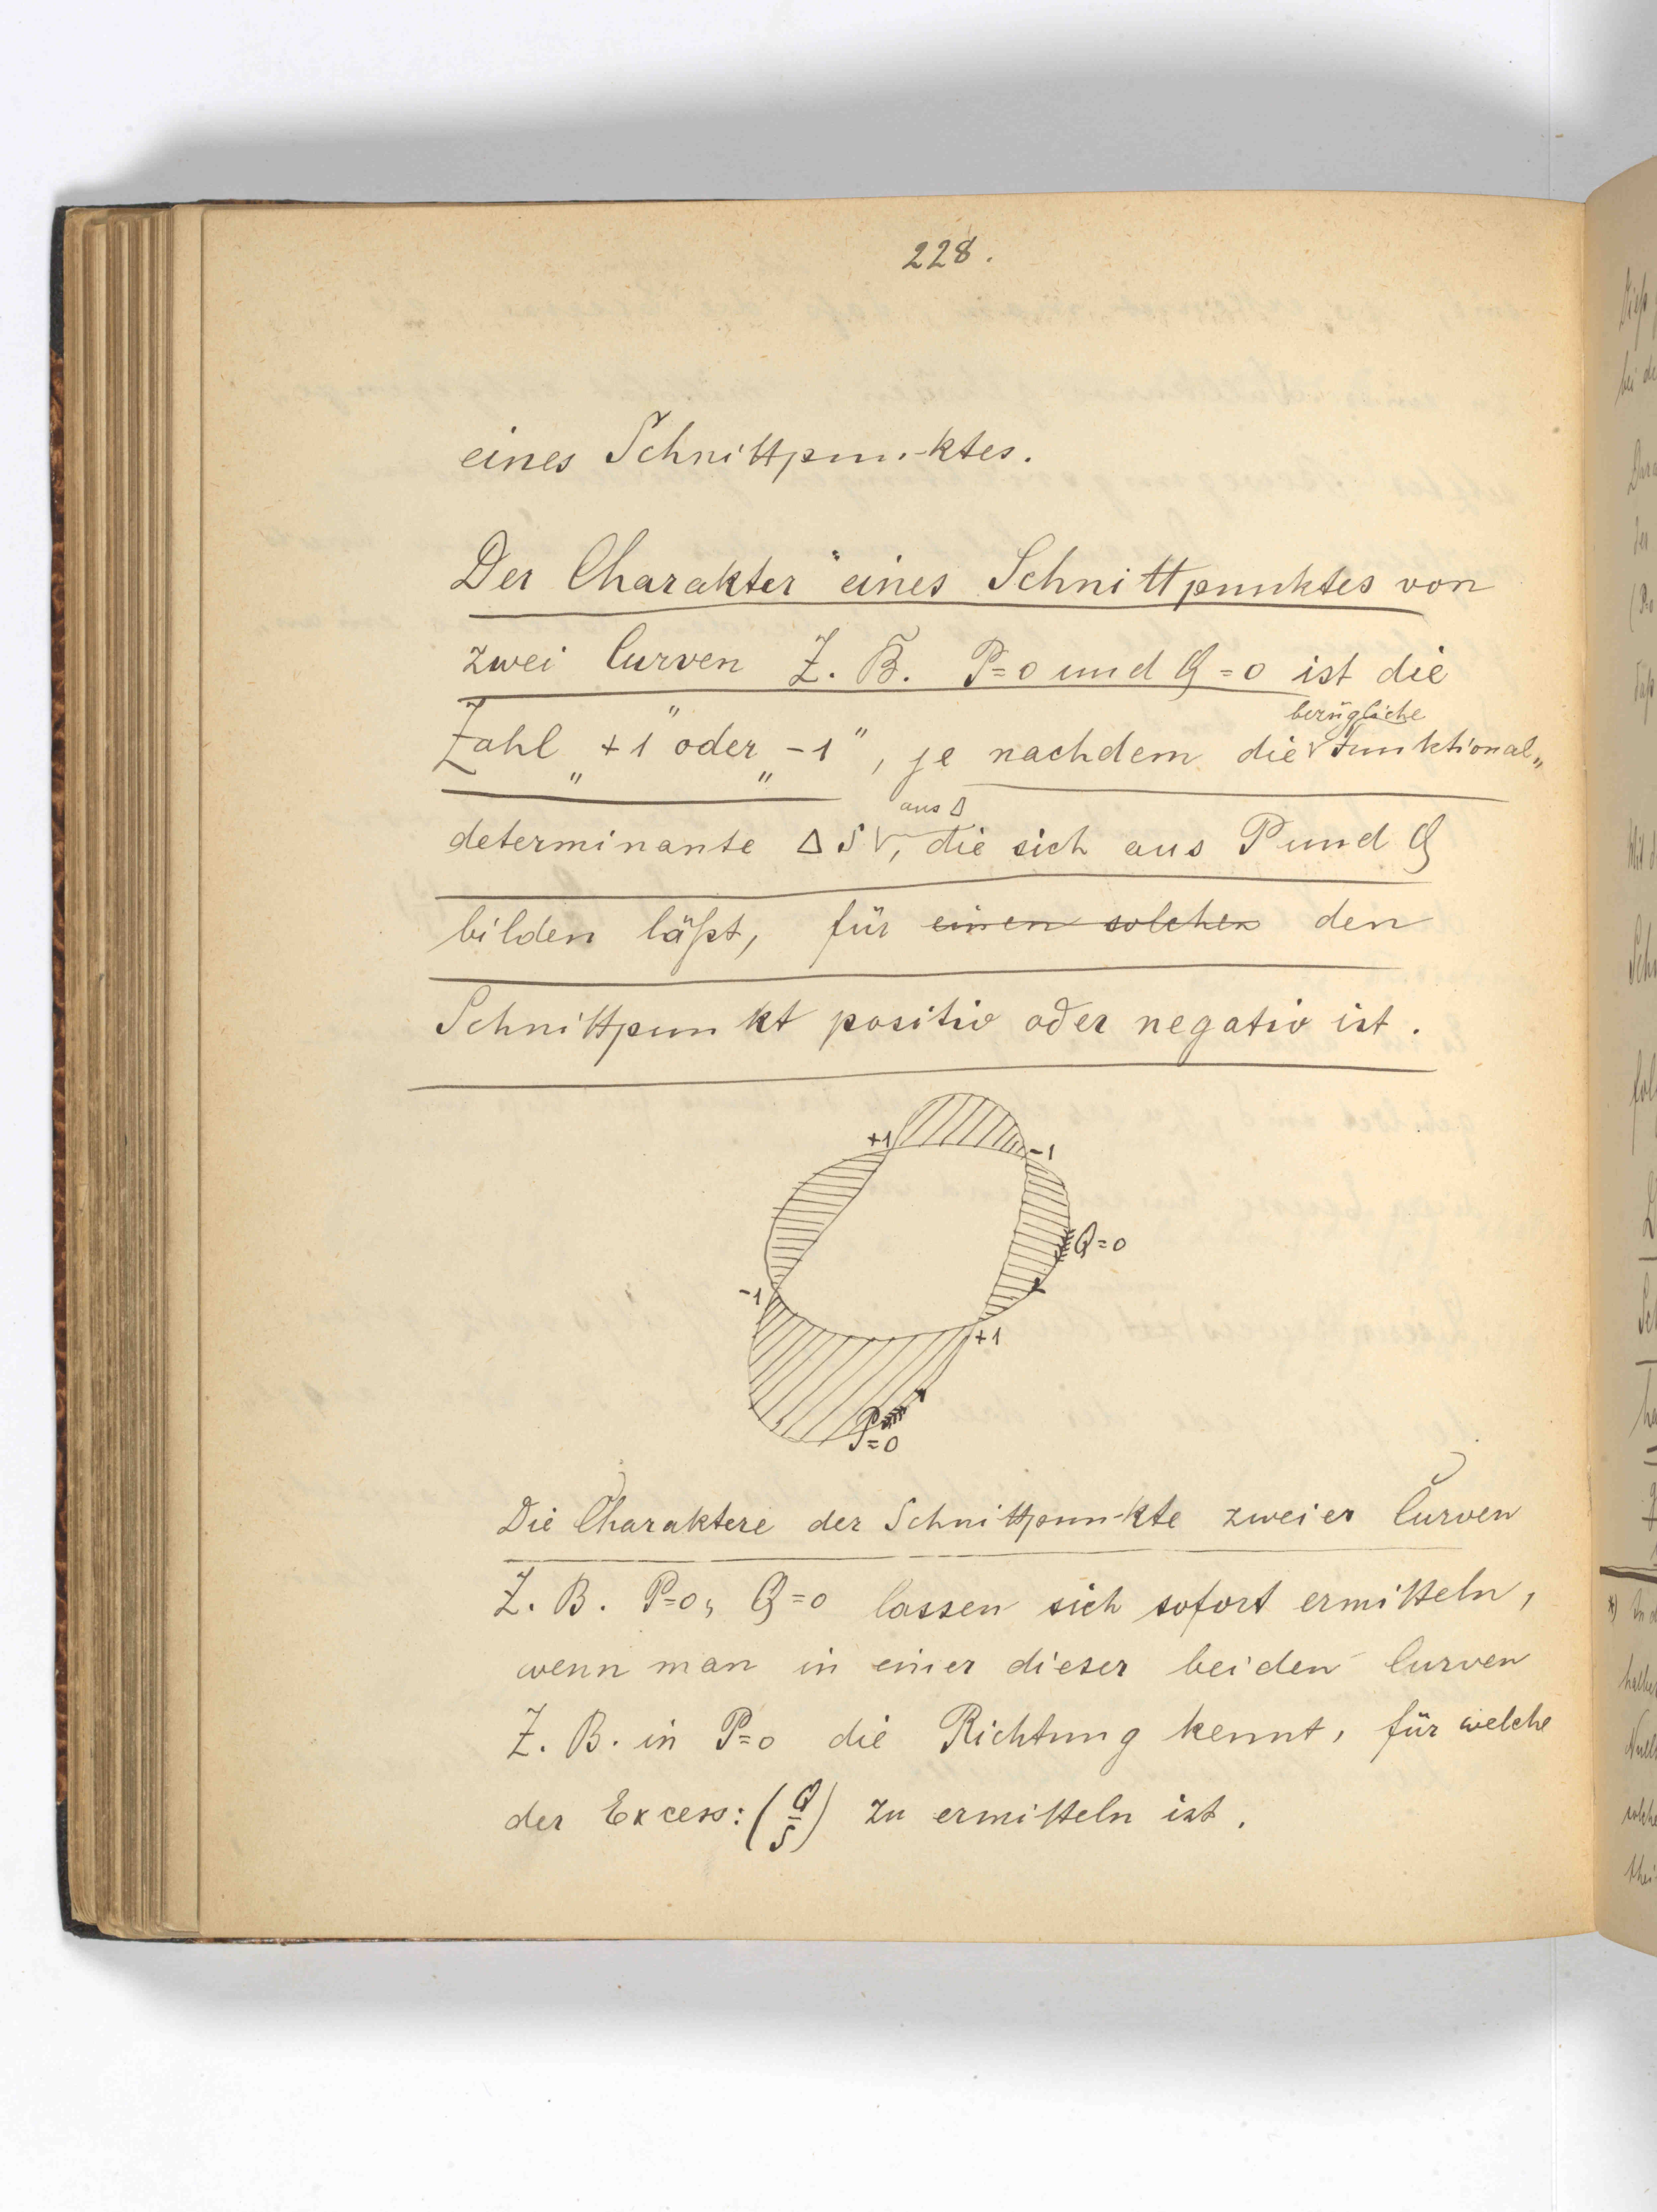 228.
eines Schnittpunktes.
Der Charakter eines Schnittpunktes von
zwei Curven Z. B. P=0 und Q=0 ist die
bezügliche
Zahl „+1“ oder „-1“, je nachdem die Funktional„
aus Δ
determinante Δ S, die sich aus P und Q
bilden läßt, für einen solchen den
Schnittpunkt positiv oder negativ ist.
+1
-1
Q=0
-1
+1
P=0
Die Charaktere der Schnittpunkte zweier Curven
Z. B. P=0, Q=0 lassen sich sofort ermitteln,
wenn man in einer dieser beiden Curven
Z. B. in P=0 die Richtung kennt, für welche
der Excess: (Q/S) zu ermitteln ist.